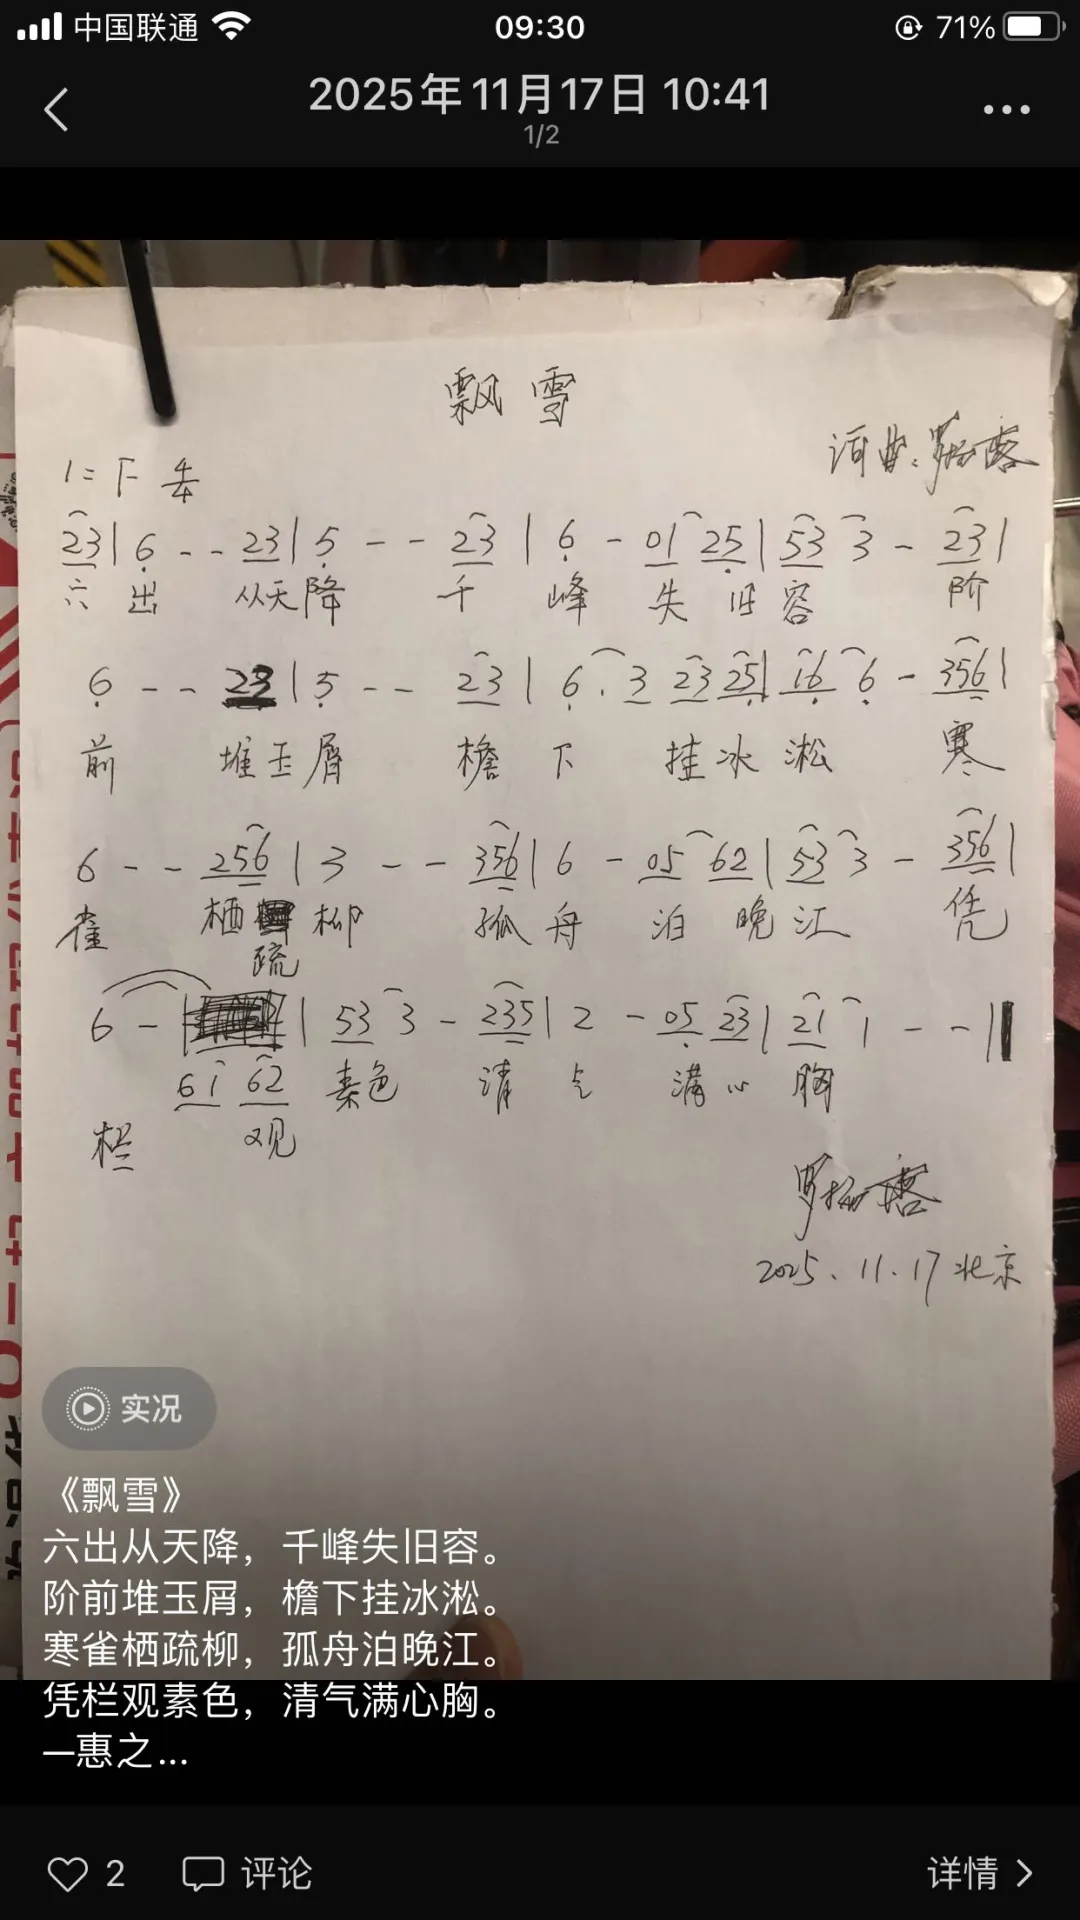 中国联通 09:30 71%
2025年11月17日 10:41
1/2
飘雪
1=F 4/4
词曲:
23 | 6 - - 23 | 5 - - 23 | 6 - 01 25 | 53 3 - 23 |
六 出 从天降 千 峰 失 旧容 阶
6 - - 23 | 5 - - 23 | 6 . 3 23 25 | 16 6 - 356 |
前 堆玉屑 檐 下 挂冰淞 寒
6 - - 256 | 3 - - 356 | 6 - 05 62 | 53 3 - 356 |
雀 栖 柳 孤 舟 泊 晚江 凭
疏
6 - | 53 3 - 235 | 2 - 05 23 | 21 1 - - ‖
61 62 素色 清 气 满心 胸
栏 观
2025.11.17 北京
实况
《飘雪》
六出从天降，千峰失旧容。
阶前堆玉屑，檐下挂冰淞。
寒雀栖疏柳，孤舟泊晚江。
凭栏观素色，清气满心胸。
—惠之...
2 评论 详情